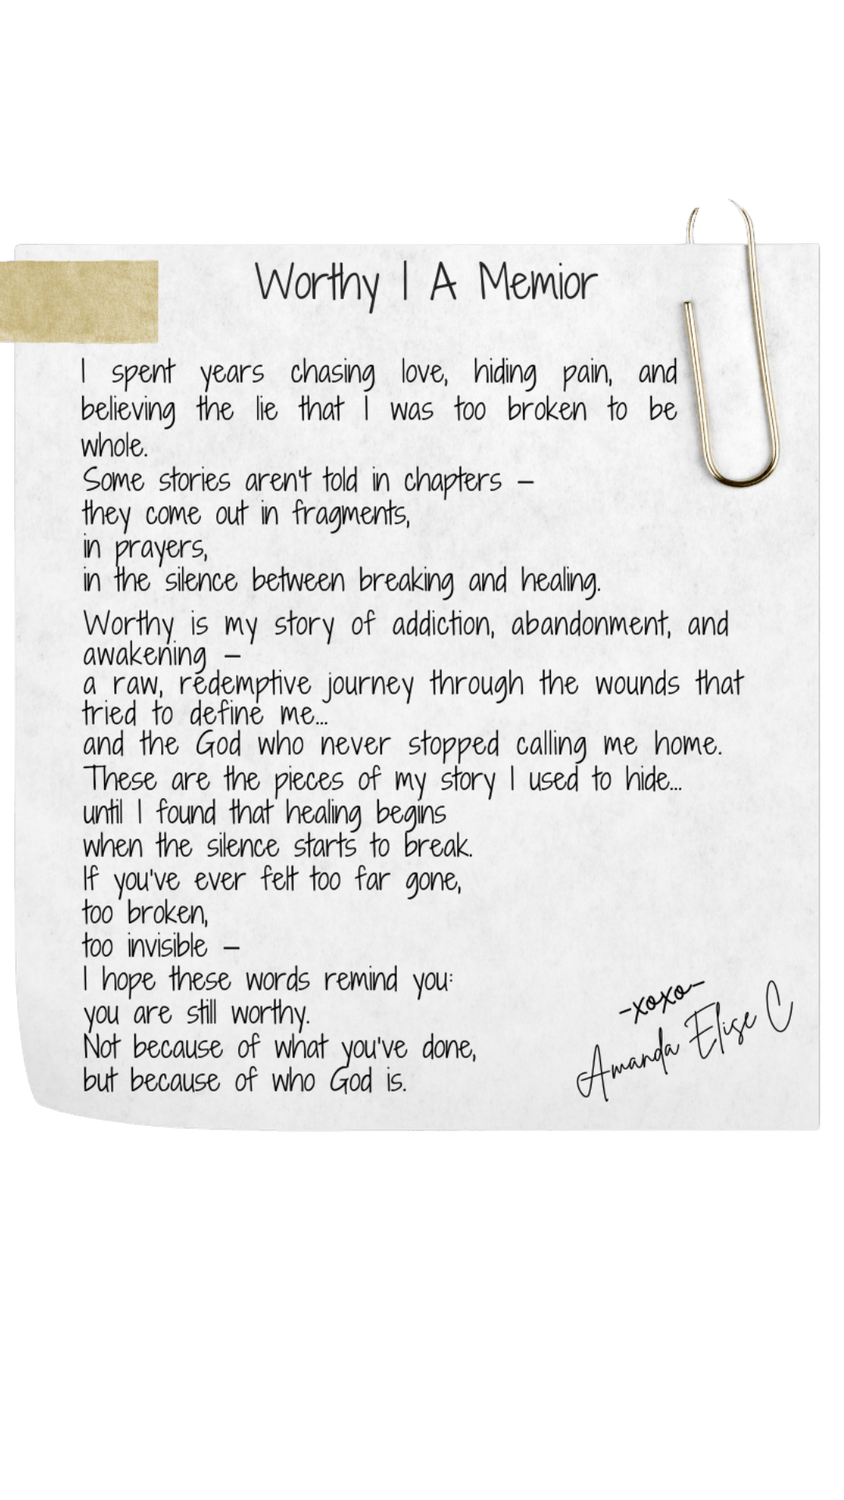 Worthy | A Memior
I spent years chasing love, hiding pain, and
believing the lie that I was too broken to be
whole.
Some stories aren't told in chapters —
they come out in fragments,
in prayers,
in the silence between breaking and healing.
Worthy is my story of addiction, abandonment, and
awakening —
a raw, redemptive journey through the wounds that
tried to define me...
and the God who never stopped calling me home.
These are the pieces of my story I used to hide...
until I found that healing begins
when the silence starts to break.
If you've ever felt too far gone,
too broken,
too invisible —
I hope these words remind you:
you are still worthy.
Not because of what you've done,
but because of who God is.
-xoxo-
Amanda Elise C